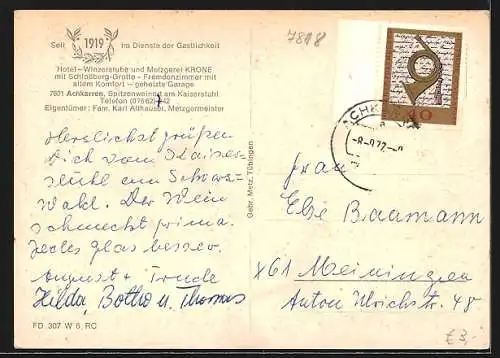 Seit 1919 im Dienste der Gastlichkeit
Hotel-Winzerstube und Metzgerei KRONE
mit Schloßberg-Grotte - Fremdenzimmer mit
allem Komfort - geheizte Garage
7801 Achkarren, Spitzenweinort am Kaiserstuhl
Telefon (07662) 742
Eigentümer: Fam. Karl Althauser, Metzgermeister
7818
Herzlichst grüßen
Dich vom Kaiser-
stuhl im Schwarz-
Wald. Der Wein
schmeckt prima.
Jedes Glas besser.
August + Trude
Hilda, Botho u. Thomas
FD 307 W 6 RC
Gebr. Metz, Tübingen
ACHK
-8.-9.72.-
40
Frau
Else Braamann
X61 Meiningen
Anton Ulrichstr. 48
€3,-